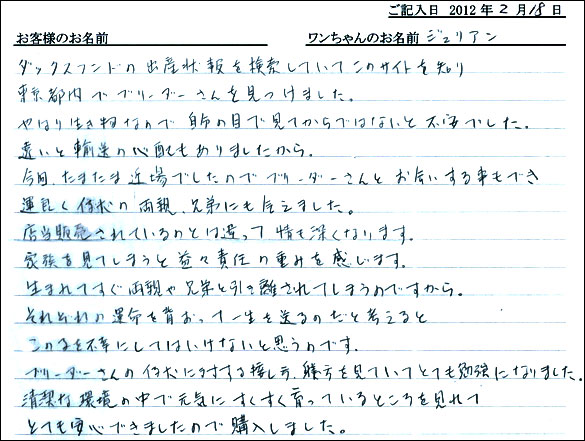 ご記入日 2012年2月18日
お客様のお名前 ワンちゃんのお名前 ジュリアン
ダックスフンドの出産状報を検索していてこのサイトを知り
東京都内でブリーダーさんを見つけました。
やはり生き物なので自分の目で見てからではないと不安でした。
遠いと輸送の心配もありましたから。
今回、たまたま近場でしたのでブリーダーさんとお会いする事もでき
運良く仔犬の両親、兄弟にも会えました。
店当販売されているのとは違って情も深くなります。
家族を見てしまうと益々責任の重みを感じます。
生まれてすぐ両親や兄弟と引き離されてしまうのですから。
それぞれの運命を背おって一生を送るのだと考えると
この子を不幸にしてはいけないと思うのです。
ブリーダーさんの仔犬に対する接し方、躾方を見ていてとても勉強になりました。
清潔な環境の中で元気にすくすく育っているところを見れて
とても安心できましたので購入しました。